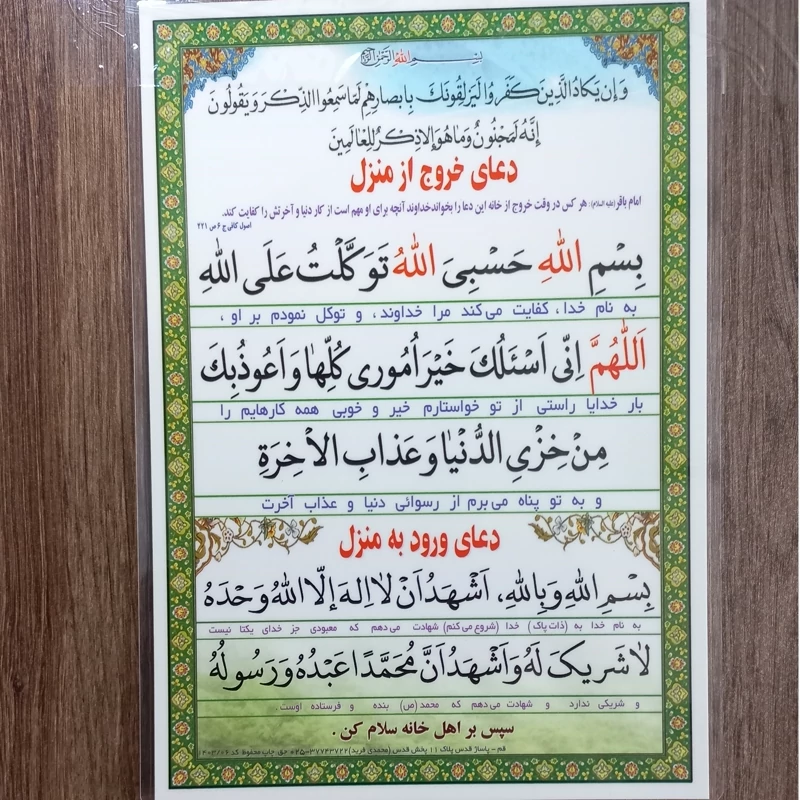 بِسْمِ اللهِ الرَّحْمٰنِ الرَّحیمِ
وَاِنْ یَکادُ الَّذینَ کَفَرُوا لَیُزْلِقُونَکَ بِاَبْصارِهِمْ لَمّا سَمِعُوا الذِّکْرَ وَ یَقُولُونَ
اِنَّهُ لَمَجْنُونٌ وَما هُوَ اِلّا ذِکْرٌ لِلْعالَمینَ
دعای خروج از منزل
امام باقر (علیه السلام): هر کس در وقت خروج از خانه این دعا را بخواند خداوند آنچه برای او مهم است از کار دنیا و آخرتش را کفایت کند.
اصول کافی ج ۶ ص ۲۲۱
بِسْمِ اللهِ حَسْبِیَ اللهُ تَوَکَّلْتُ عَلَی اللهِ
به نام خدا، کفایت می کند مرا خداوند، و توکل نمودم بر او ،
اَللّٰهُمَّ اِنّی اَسْئَلُکَ خَیْرَ اُمُوری کُلِّهٰا وَ اَعُوذُبِکَ
بار خدایا راستی از تو خواستارم خیر و خوبی همه کارهایم را
مِنْ خِزْیِ الدُّنْیٰا وَ عَذابِ الاٰخِرَةِ
و به تو پناه می برم از رسوائی دنیا و عذاب آخرت
دعای ورود به منزل
بِسْمِ اللهِ وَ بِاللهِ، اَشْهَدُ اَنْ لٰا اِلهَ اِلَّا اللهُ وَحْدَهُ
به نام خدا به (ذات پاک) خدا (شروع می کنم) شهادت می دهم که معبودی جز خدای یکتا نیست
لٰا شَریکَ لَهُ وَ اَشْهَدُ اَنَّ مُحَمَّدًا عَبْدُهُ وَ رَسُولُهُ
و شریکی ندارد و شهادت می دهم که محمد(ص) بنده و فرستاده اوست.
سپس بر اهل خانه سلام کن .
قم - پاساژ قدس پلاک ۱۱ پخش قدس (محمدی فرید) ۳۷۷۴۳۷۲۲-۰۲۵ حق چاپ محفوظ کد ۱۴۰۳/۰۶